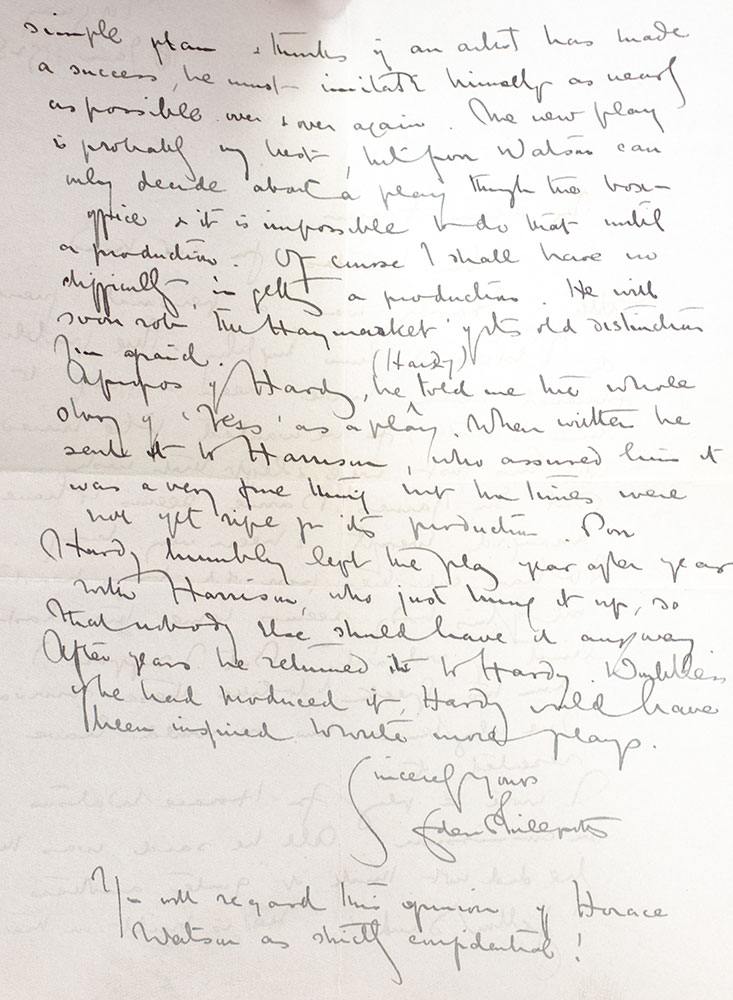 simple plan & thinks if an artist has made
a success, he must imitate himself as nearly
as possible over & over again. The new play
is probably my best, but poor Watson can
only decide about a play though the box-
office & it is impossible to do that until
a production. Of course I shall have no
difficulty in getting a production. He will
soon rob 'the Haymarket' of its old distinction
I'm afraid.
(Hardy)
Apropos of Hardy, he told me the whole
story of 'Tess' as a play. When written he
sent it to Harrison, who assured him it
was a very fine thing but the times were
not yet ripe for its production. Poor
Hardy humbly left the play year after year
with Harrison, who just hung it up, so
that nobody else should have it anyway
After years he returned it to Hardy. Doubtless
if he had produced it, Hardy would have
been inspired to write more plays.
Sincerely Yours
Eden Phillpotts
You will regard this opinion of Horace
Watson as strictly confidential!